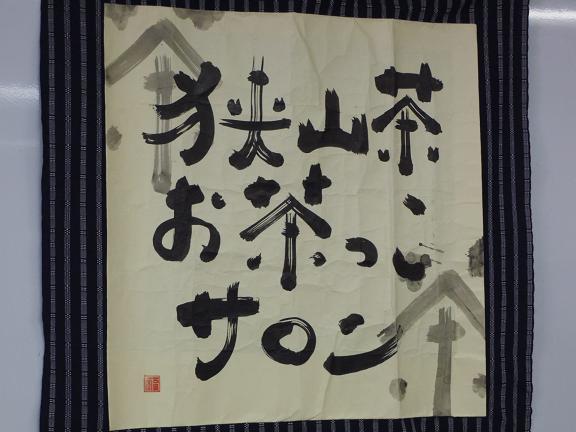 狭山茶
お茶っこ
サロン